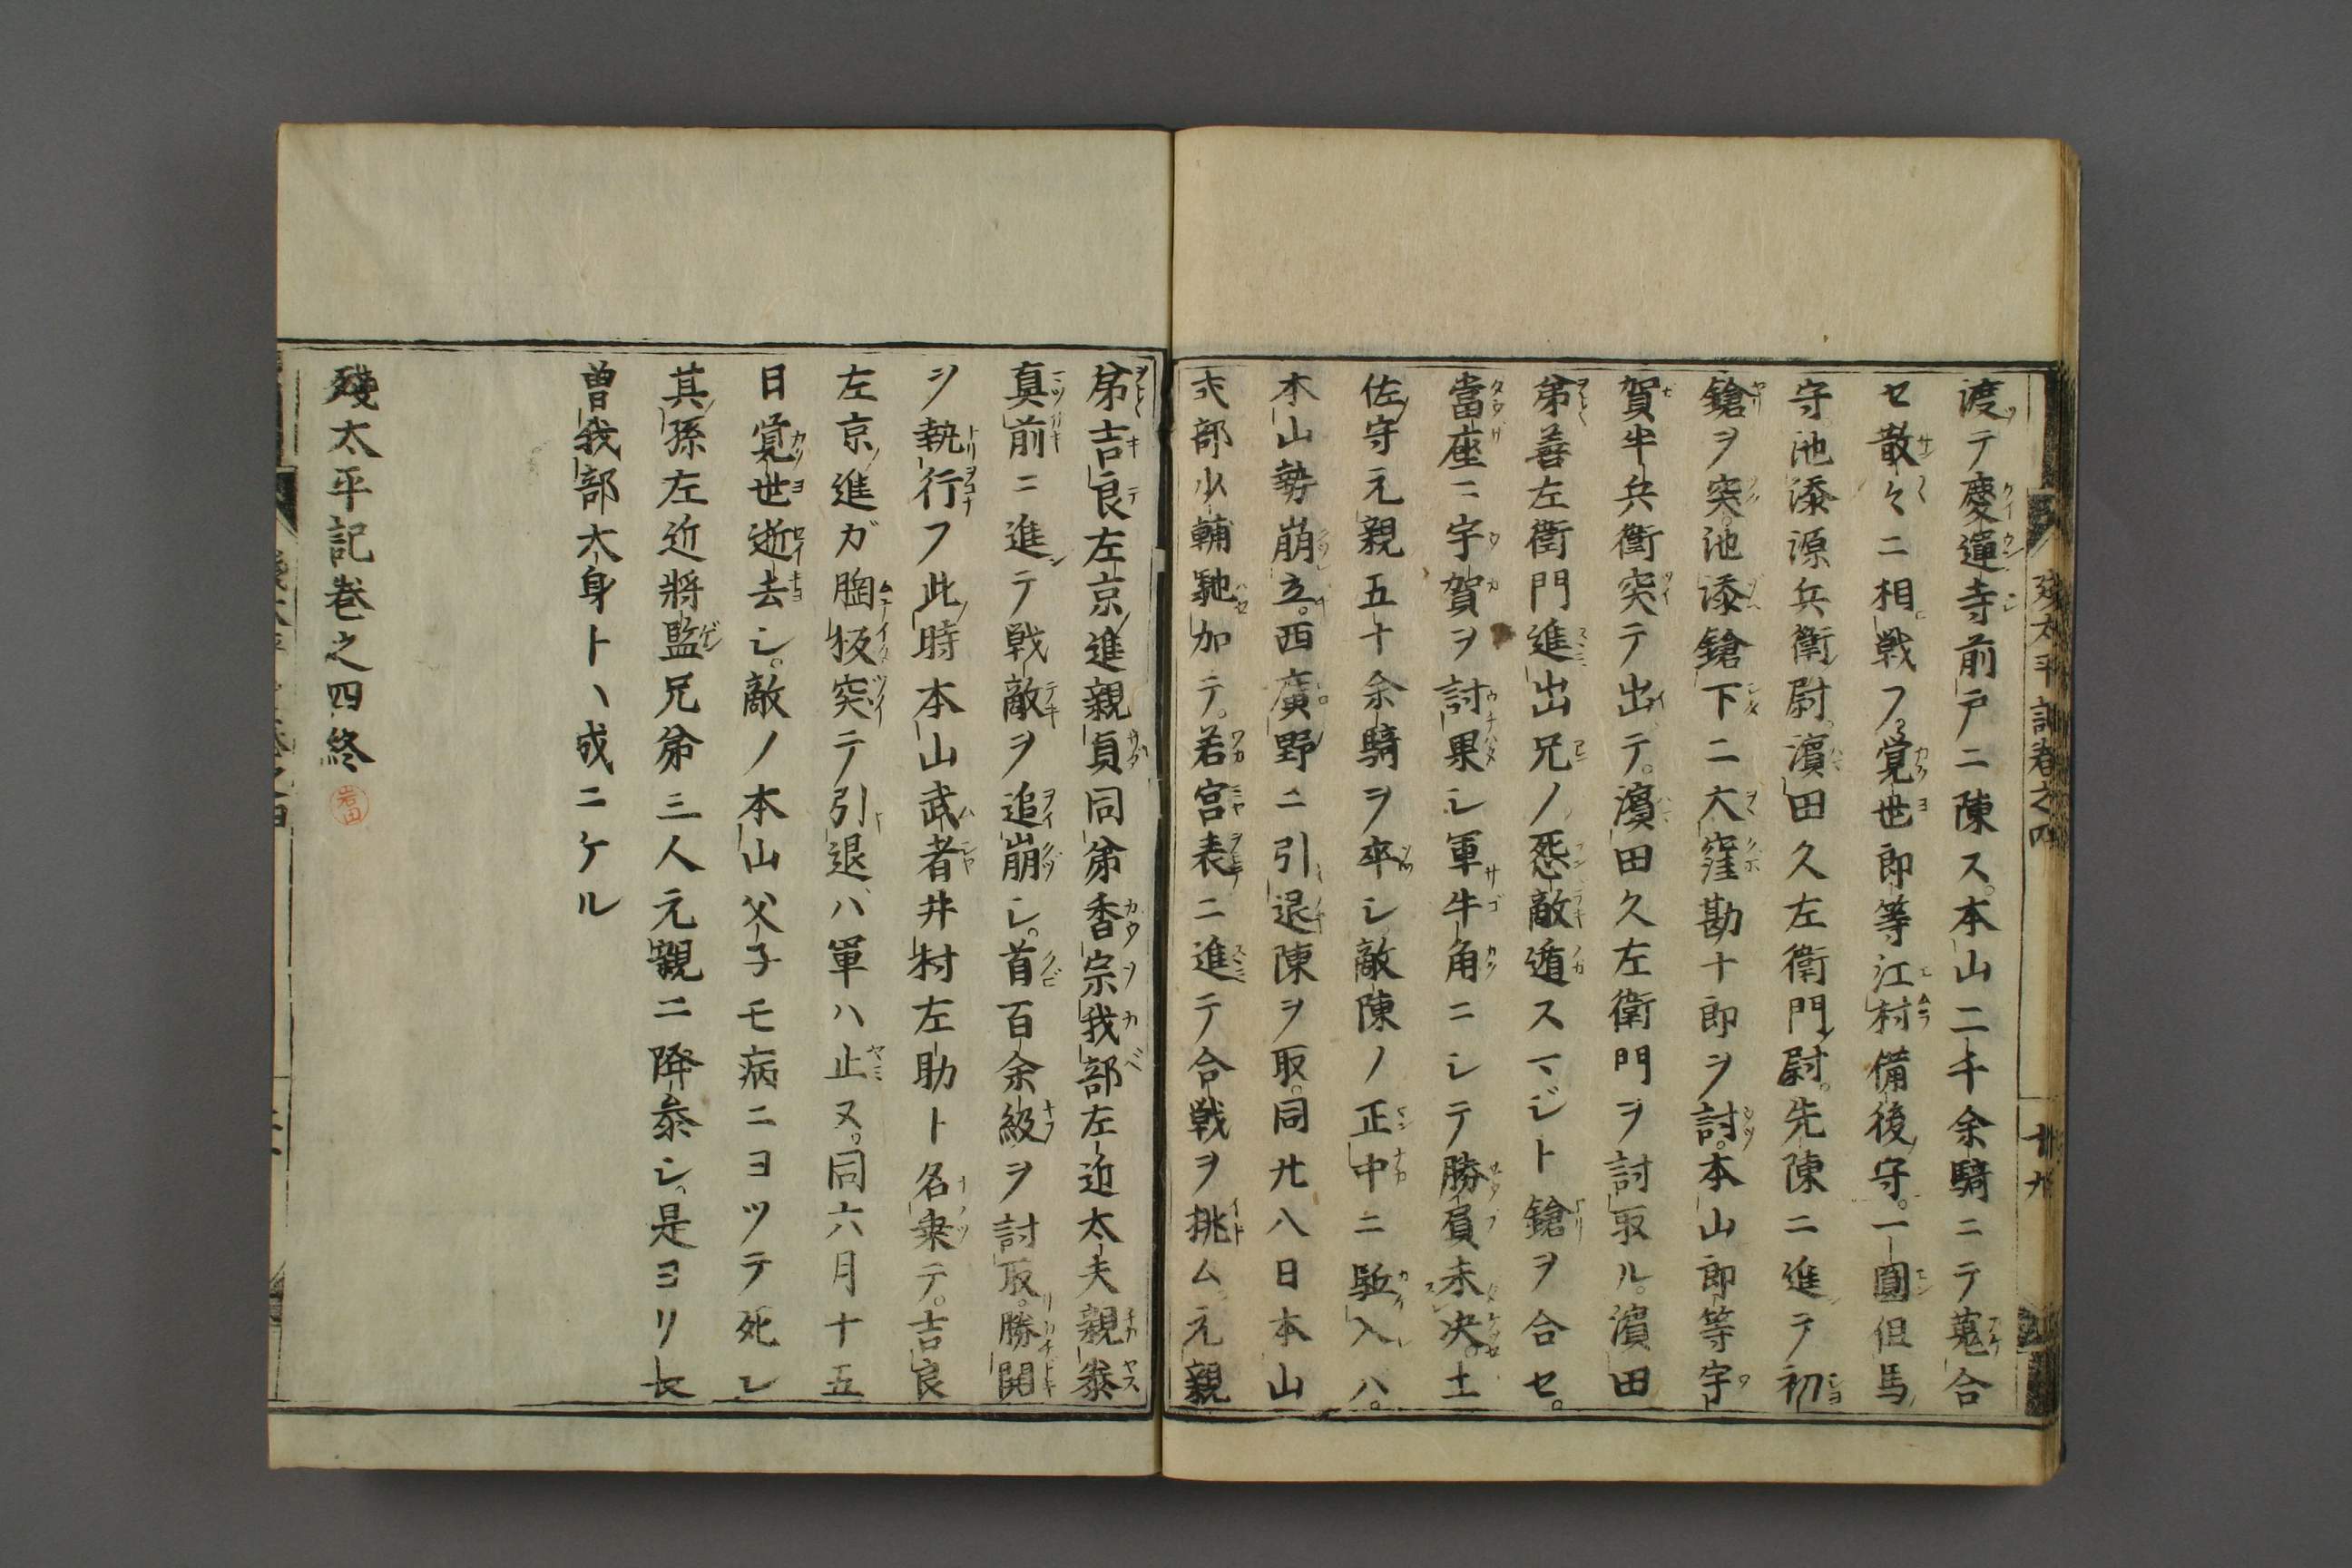 渡テ慶運寺前戸ニ陳ス。本山二千余騎ニテ蒐合
セ散々ニ相戦フ。覚世郎等江村備後守。一圓但馬
守池添源兵衛尉。濵田久左衛門尉。先陳ニ進テ初
鎗ヲ突。池添鎗下ニ大窪勘十郎ヲ討。本山郎等宇
賀半兵衛突テ出テ。濵田久左衛門ヲ討取ル。濵田
弟善左衛門進出兄ノ怨敵遁スマジト鎗ヲ合セ。
當座ニ宇賀ヲ討果シ軍牛角ニシテ勝負未决。土
佐守元親五十余騎ヲ卒シ敵陳ノ正中ニ駈入ハ。
本山勢崩立。西廣野ニ引退陳ヲ取。同廿八日本山
式部少輔馳加テ。若宮表ニ進テ合戦ヲ挑ム。元親
弟吉良左京進親貞同弟香宗我部左近太夫親泰
真前ニ進テ戦敵ヲ追崩シ。首百余級ヲ討取。勝閧
ヲ執行フ此時本山武者井村左助ト名乗テ。吉良
左京進ガ胸板突テ引退ハ軍ハ止ヌ。同六月十五
日覚世逝去シ。敵ノ本山父子モ病ニヨツテ死シ
其孫左近將監兄弟三人元親ニ降参シ。是ヨリ長
曽我部大身トハ成ニケル
殘太平記巻之四終
岩田
残太平記巻之四
廿九